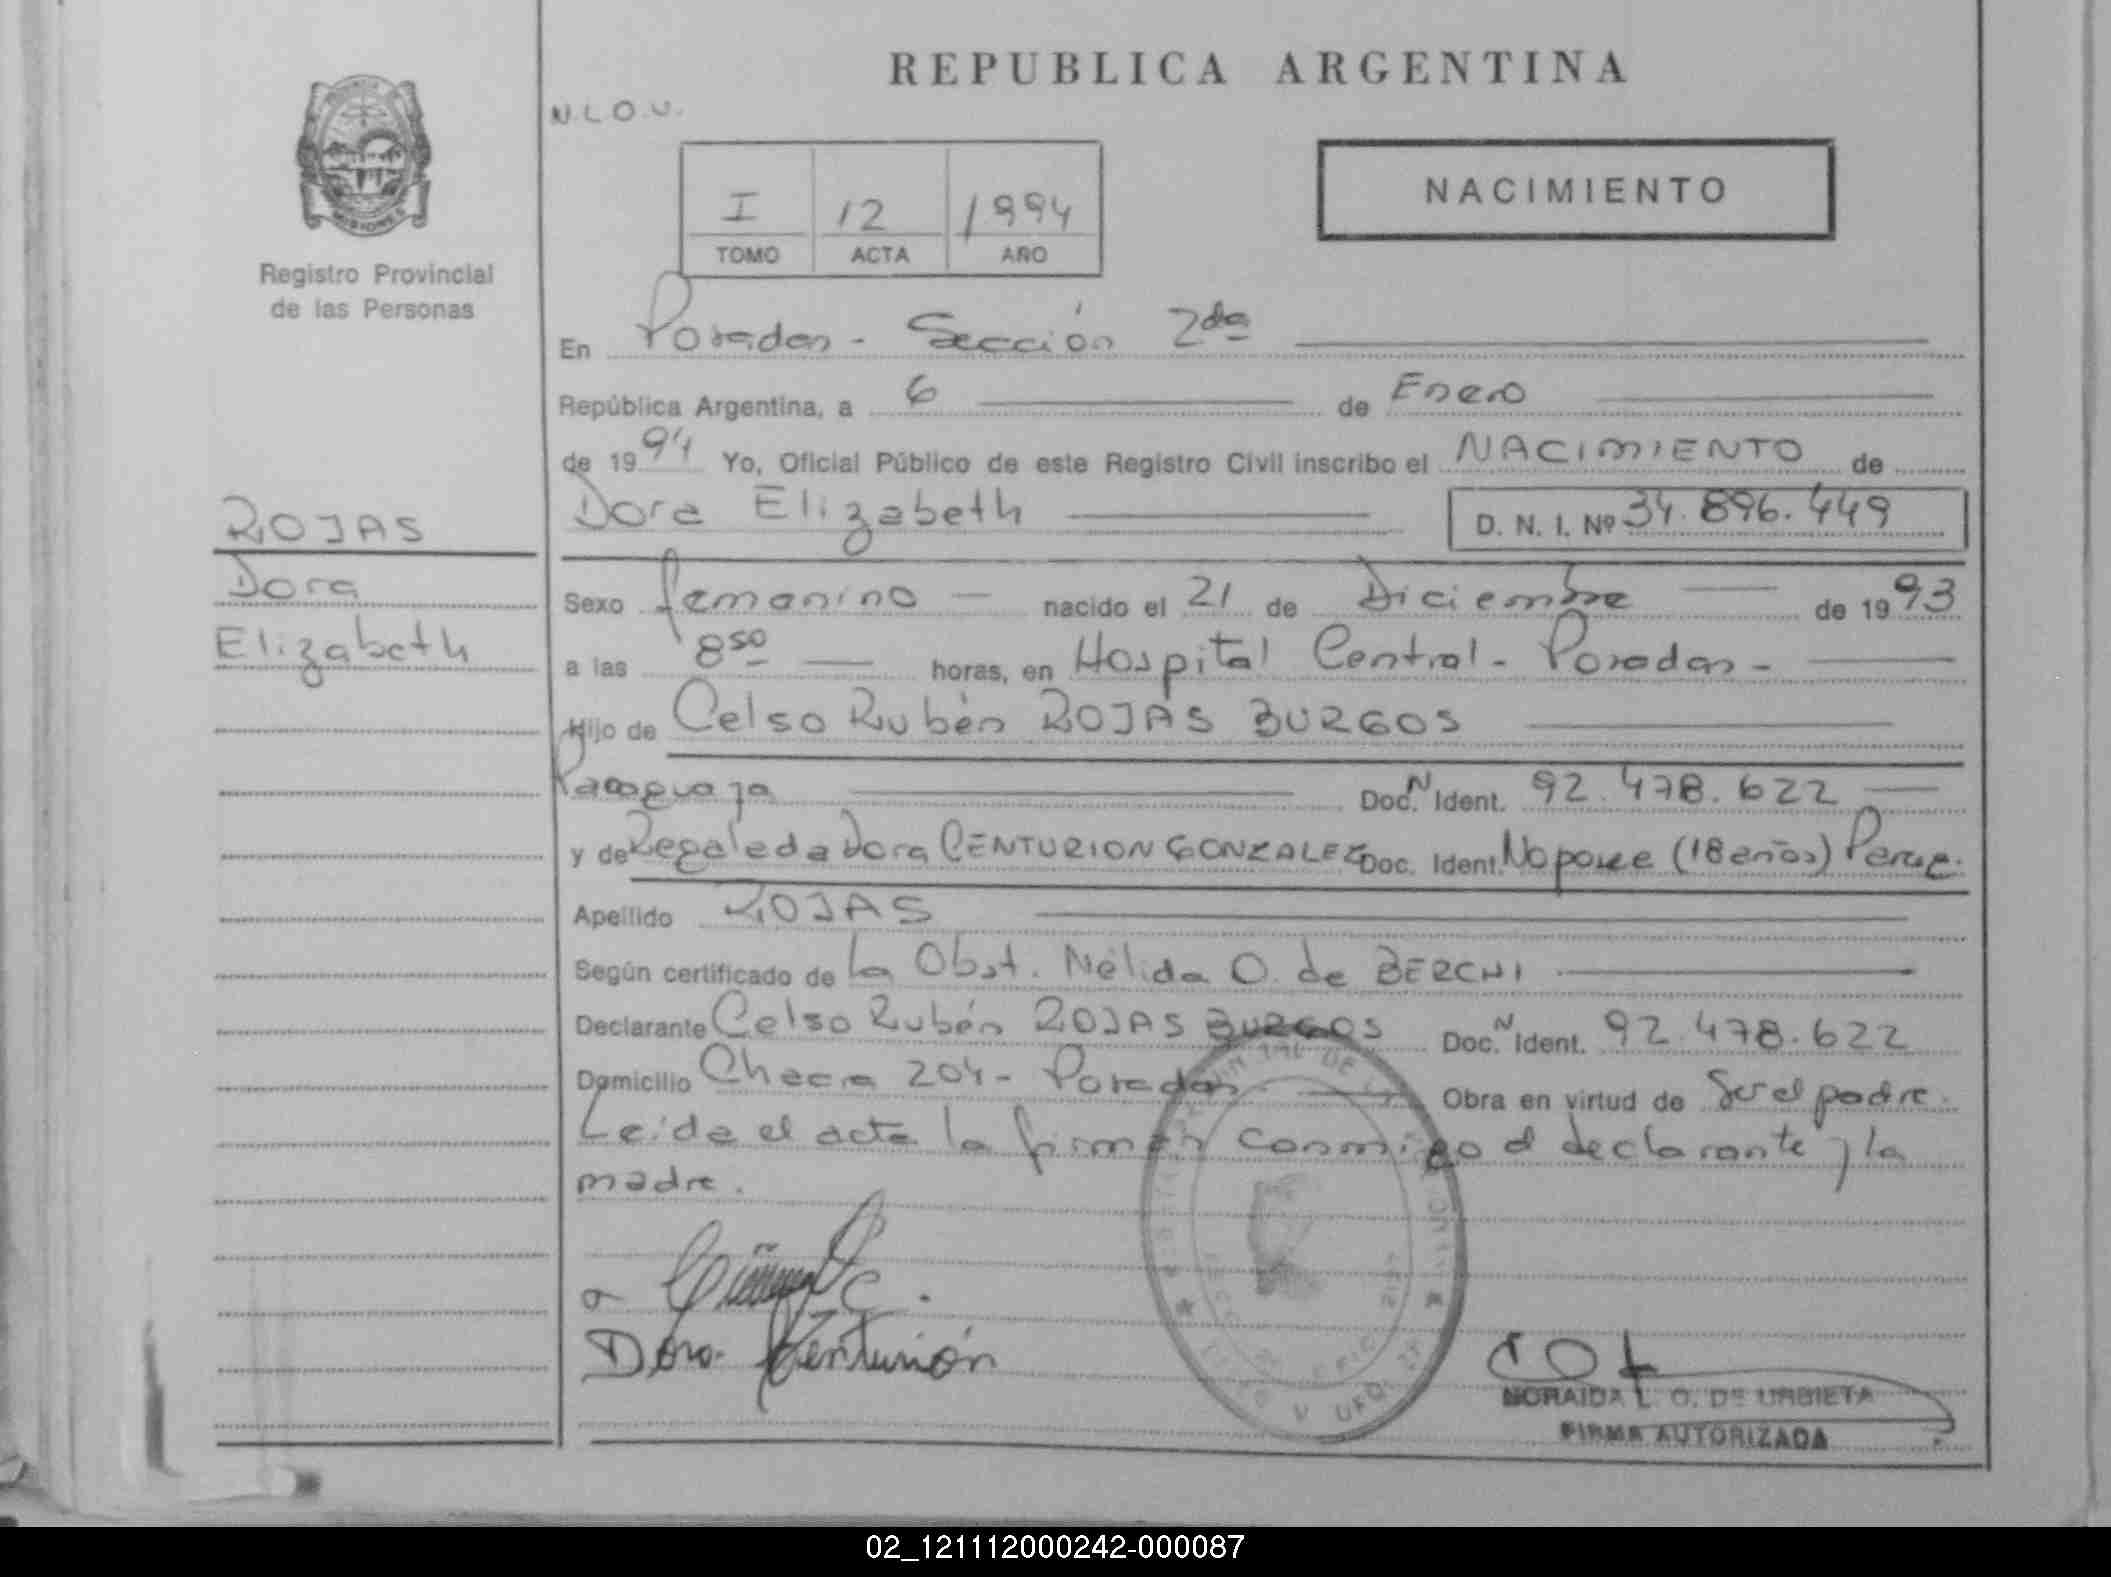 REPUBLICA ARGENTINA
N.L.O.U.
NACIMIENTO
I 12 1994
TOMO ACTA AÑO
MISIONES
Registro Provincial
de las Personas
En Posadas - Sección 2da
República Argentina, a 6 de Enero
de 1994 Yo, Oficial Público de este Registro Civil inscribo el NACIMIENTO de
ROJAS
Dora
Elizabeth
Dora Elizabeth D. N. I. Nº 34.896.449
Sexo femenino nacido el 21 de Diciembre de 1993
a las 8 50 horas, en Hospital Central - Posadas -
Hijo de Celso Rubén ROJAS BURGOS
Paraguaya Doc. N Ident. 92.478.622
y de Regalada Dora CENTURION GONZALEZ Doc. Ident. No posee (18 años) Parag.
Apellido ROJAS
Según certificado de la Obst. Nélida O. de BERCHI
Declarante Celso Rubén ROJAS BURGOS Doc. N Ident. 92.478.622
Domicilio Checra 204 - Posadas Obra en virtud de Ser el padre.
Leida el acta la firman conmigo el declarante y la
madre.
Dora Centurión
NORAIDA L. O. DE URBIETA
FIRMA AUTORIZADA
02_121112000242-000087